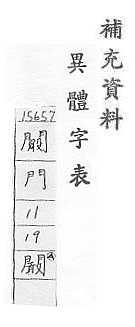 補充資料
異體字表
15657
門
11
19